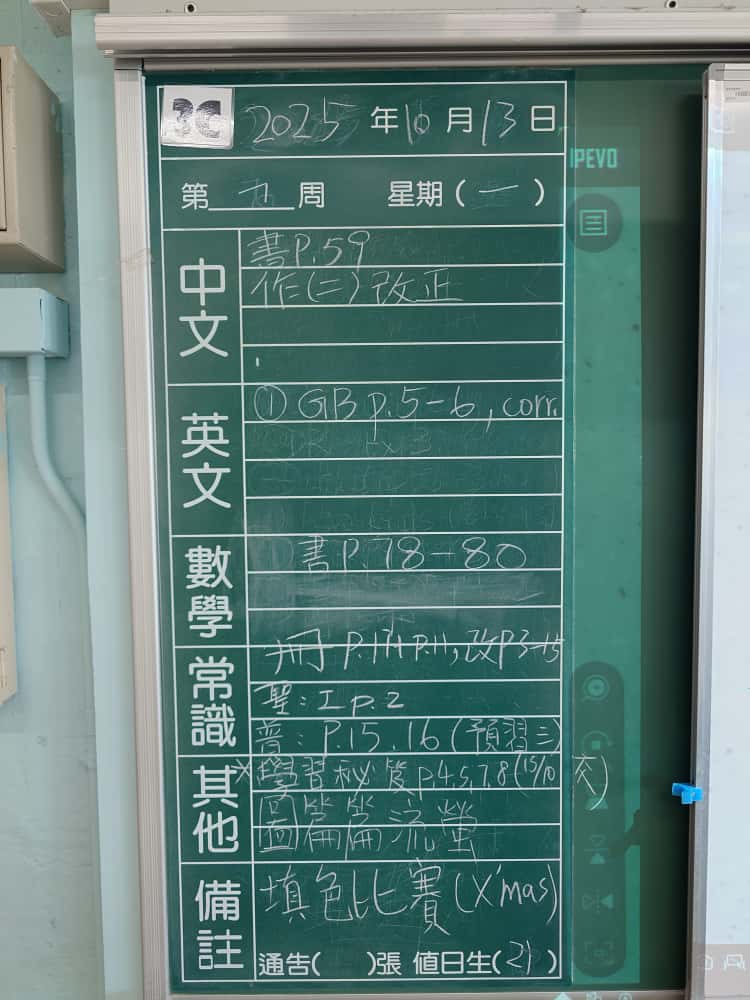 3C 2025年10月13日
IPEVO
第 九 周 星期(一)
中文
書P.59
作(二)改正
英文
① GB p.5-6, corr.
數學
書P.78-80
常識
冊 P.17+P.11,改P3-15
聖:I p.2
普:P.15.16(預習三)
其他
*學習秘笈p.4,5,7,8(15/10交)
圖篇篇流螢
備註
填色比賽(X'mas)
通告( )張 值日生(21)